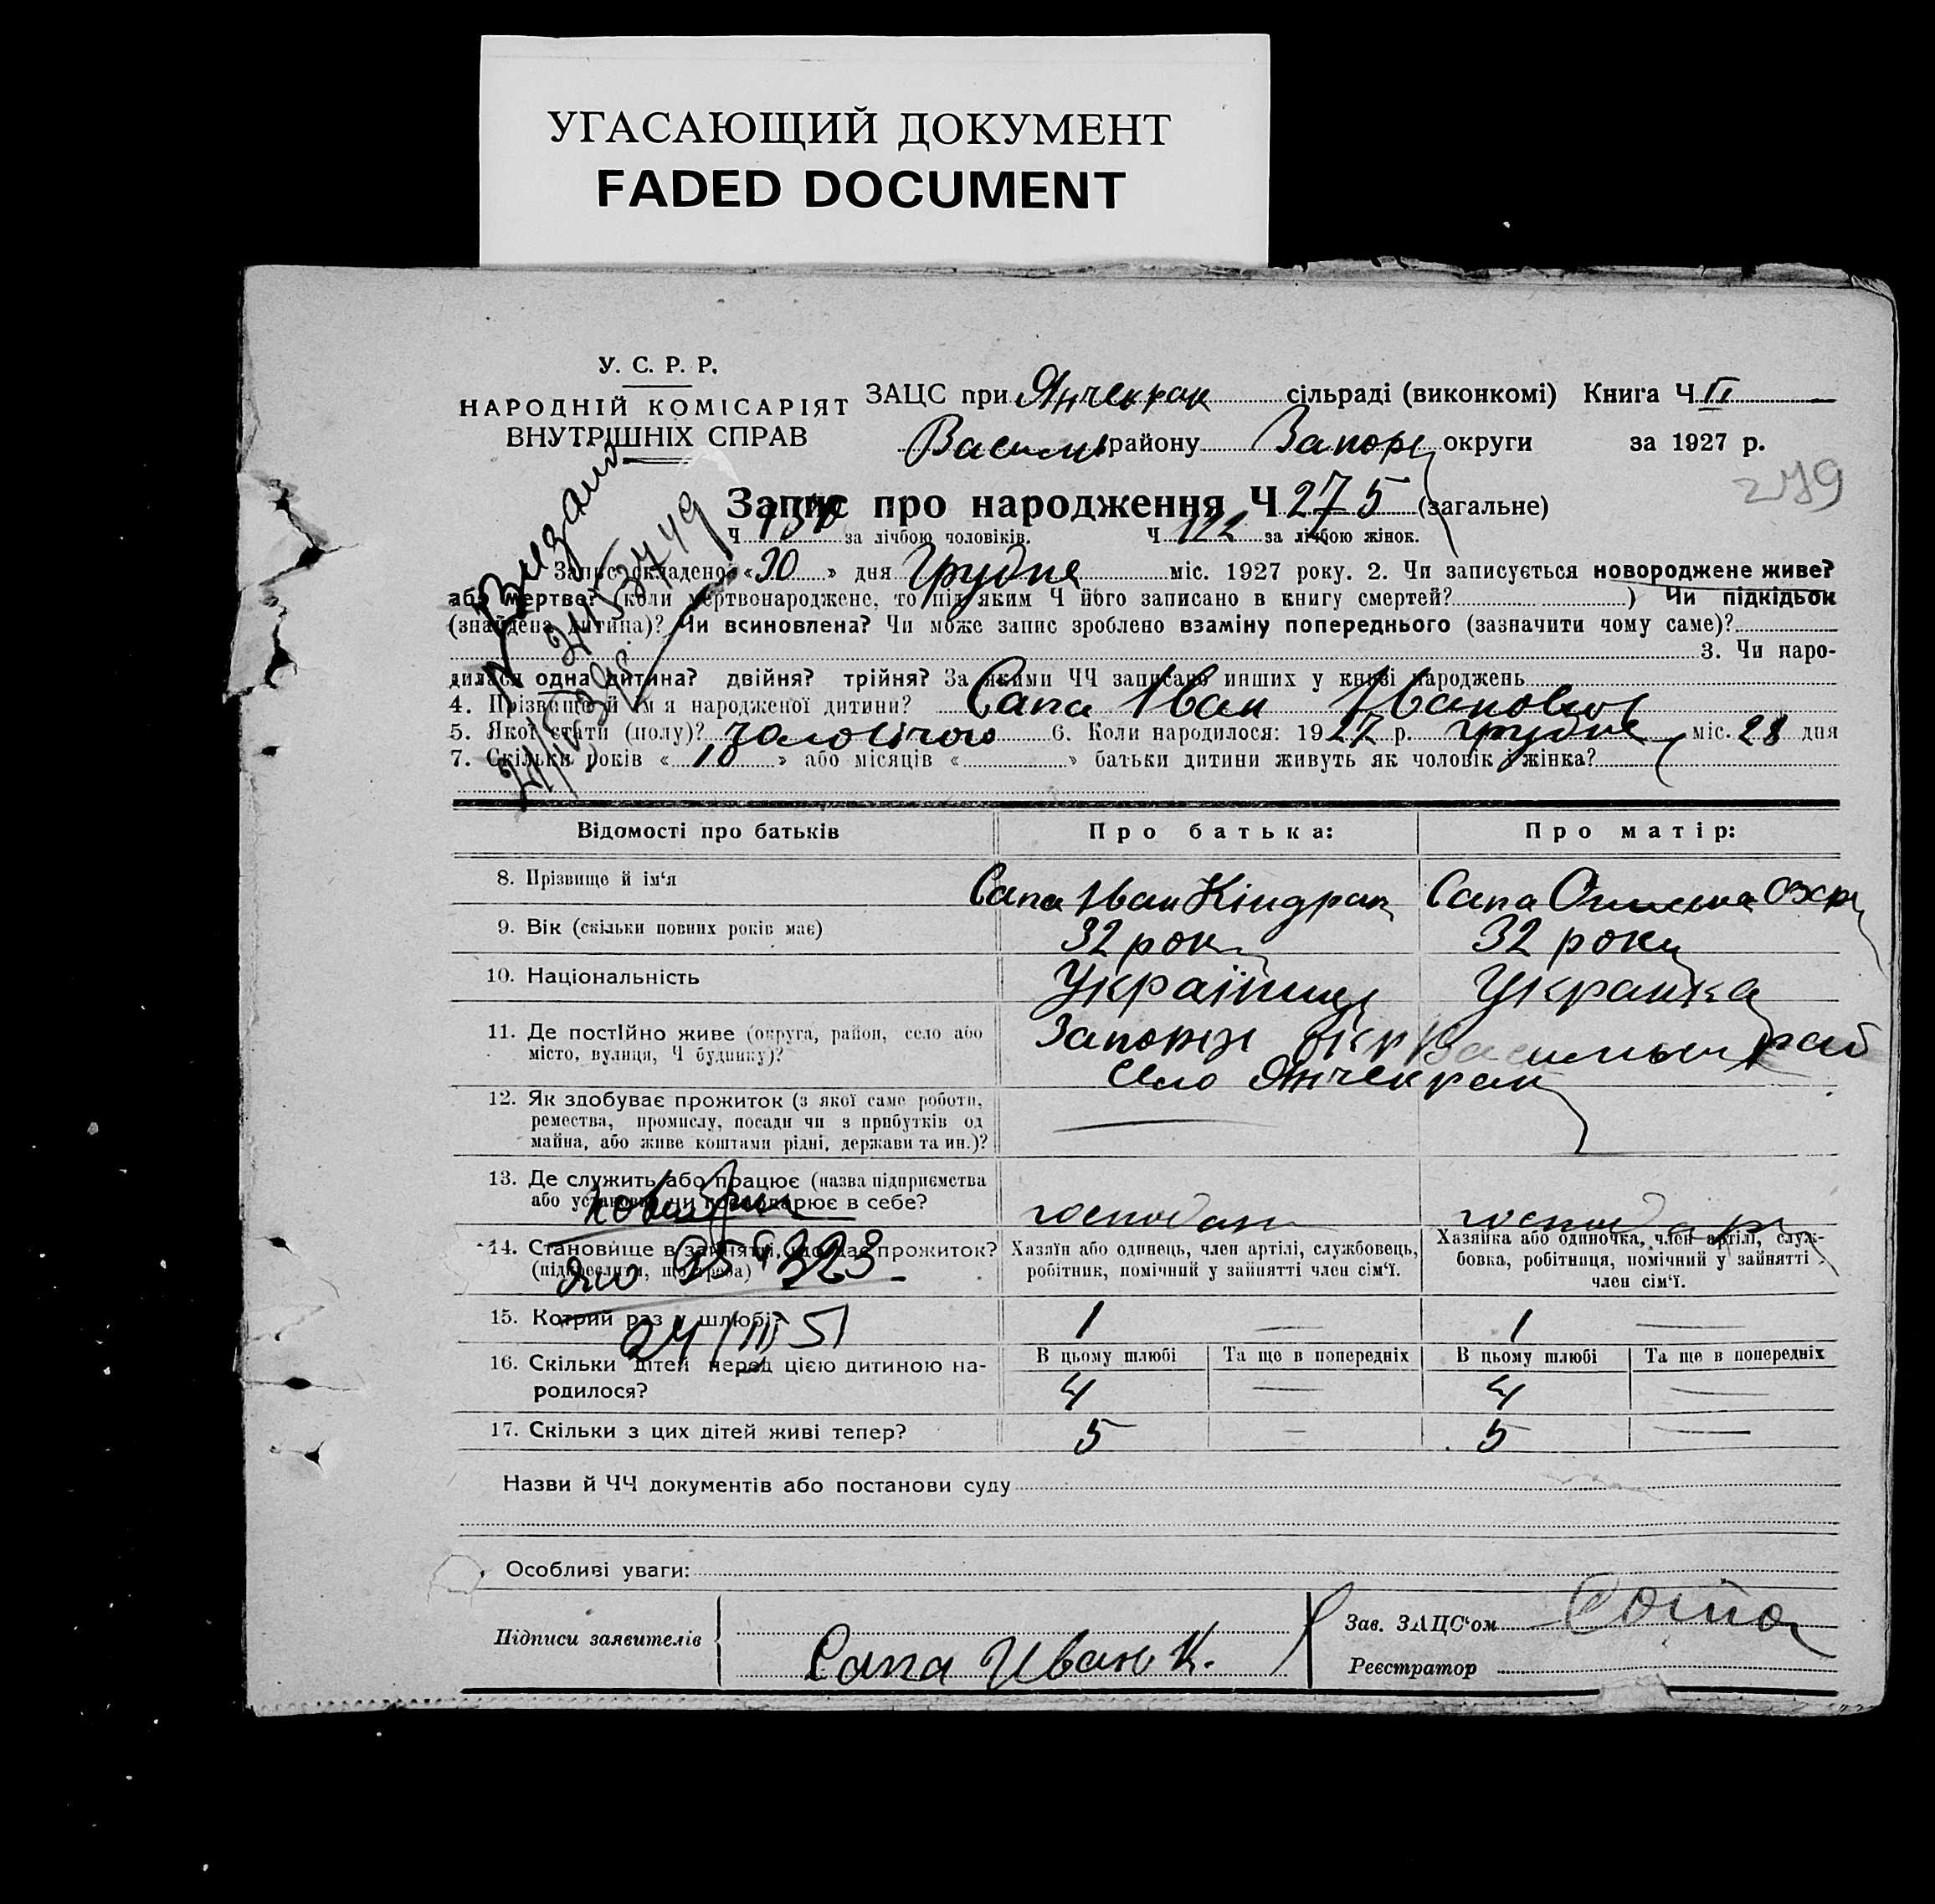 УГАСАЮЩИЙ ДОКУМЕНТ
FADED DOCUMENT
У. С. Р. Р.
НАРОДНІЙ КОМІСАРІЯТ
ВНУТРІШНІХ СПРАВ
ЗАЦС при Янчекрак сільраді (виконкомі) Книга Ч II
Василів району Запоріз округи за 1927 р.
279
Запис про народження Ч 275 (загальне)
Ч за лічбою чоловіків. Ч 122 за лічбою жінок.
Запис складено: «30» дня Грудня міс. 1927 року. 2. Чи записується новороджене живе?
або мертве? коли мертвонароджене, то під яким Ч його записано в книгу смертей? ) Чи підкідьок
(знайдена дитина)? Чи всиновлена? Чи може запис зроблено взаміну попереднього (зазначити чому саме)?
3. Чи наро-
дилася одна дитина? двійня? трійня? За якими ЧЧ записано инших у книзі народжень
4. Прізвище й ім'я народженої дитини? Сапа Іван Іванович
5. Якої стати (полу)? чоловічого 6. Коли народилося: 1927 р. грудня міс. 28 дня
7. Скільки років «10» або місяців « » батьки дитини живуть як чоловік і жінка?
Видано
Відомості про батьків Про батька: Про матір:
8. Прізвище й ім'я Сапа Іван Кіндрат Сапа
9. Вік (скільки повних років має) 32 рок 32 роки
10. Національність Українець Украинка
11. Де постійно живе (округа, район, село або Запоріз окр Васильев рай
місто, вулиця, Ч будинку)? село Янчекрак
12. Як здобуває прожиток (з якої саме роботи,
ремества, промислу, посади чи з прибутків од
майна, або живе коштами рідні, держави та ин.)? —
13. Де служить або працює (назва підприємства
або установи) чи господарює в себе? господар господарк
14. Становище в занятті, що дає прожиток? Хазяїн або одинець, член артілі, службовець, Хазяйка або одиночка, член артілі, служ-
(підкреслити, що треба) робітник, помічний у зайнятті член сім'ї. бовка, робітниця, помічний у зайнятті
член сім'ї.
323
15. Котрий раз у шлюбі? 1 — 1 —
24/III 51
16. Скільки дітей перед цією дитиною на- В цьому шлюбі Та ще в попередніх В цьому шлюбі Та ще в попередніх
родилося? 4 — 4 —
17. Скільки з цих дітей живі тепер? 5 — 5 —
Назви й ЧЧ документів або постанови суду
Особливі уваги:
Підписи заявителів Сапа Иван К.
Зав. ЗАЦС'ом
Реєстратор